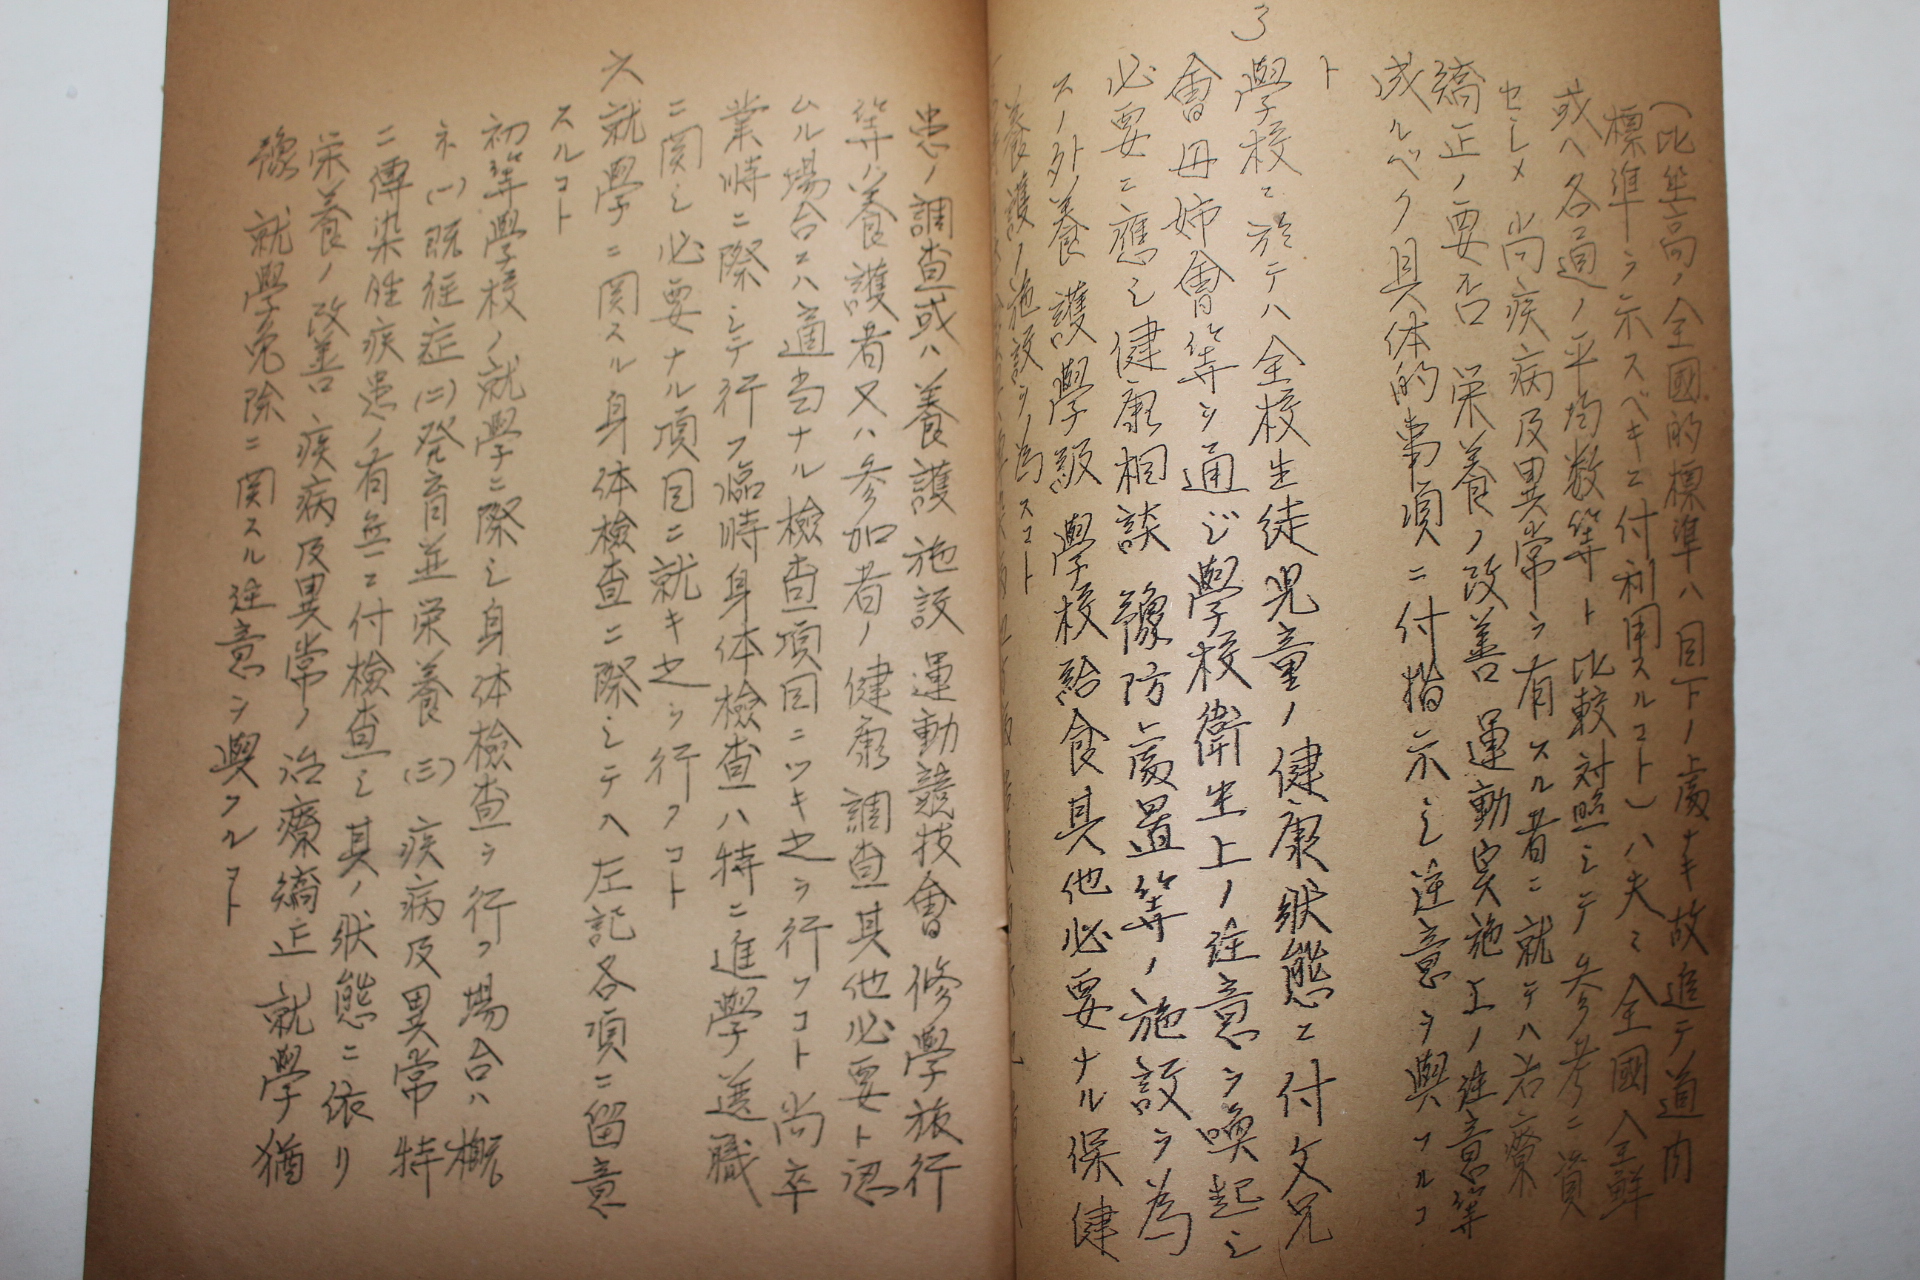 (比坐高ノ全國的標準ハ目下ノ處ナキ故追テノ道内
標準ヲ示スベキニ付利用スルコト)ハ夫々全國全鮮
或ハ各道ノ平均数等ト比較対照シテ参考ニ資
セシメ尚疾病及異常ヲ有スル者ニ就テハ治療
矯正ノ要否栄養ノ改善運動実施上ノ注意等
成ルベク具体的事項ニ付指示シ注意ヲ與フルコ
ト
3
學校ニ於テハ全校生徒児童ノ健康状態ニ付父兄
會母姉會等ヲ通ジ學校衛生上ノ注意ヲ喚起シ
必要ニ應シ健康相談豫防處置等ノ施設ヲ為
スノ外養護學級學校給食其他必要ナル保健
養護ノ施設ヲ為スコト
患ノ調査或ハ養護施設運動競技會修學旅行
等ハ養護者又ハ参加者ノ健康調査其他必要ト認
ムル場合ニハ適当ナル檢査項目ニツキ之ヲ行フコト尚卒
業時ニ際シテ行フ臨時身体檢査ハ特ニ進學選職
ニ関シ必要ナル項目ニ就キ之ヲ行フコト
六就學ニ関スル身体檢査ニ際シテハ左記各項ニ留意
スルコト
初等學校ノ就學ニ際シ身体檢査ヲ行フ場合ハ概
ネ(一)既往症(二)発育並栄養(三)疾病及異常特
ニ傳染性疾患ノ有無ニ付檢査シ其ノ状態ニ依リ
栄養ノ改善疾病及異常ノ治療矯正就學猶
豫就學免除ニ関スル注意ヲ與フルコト